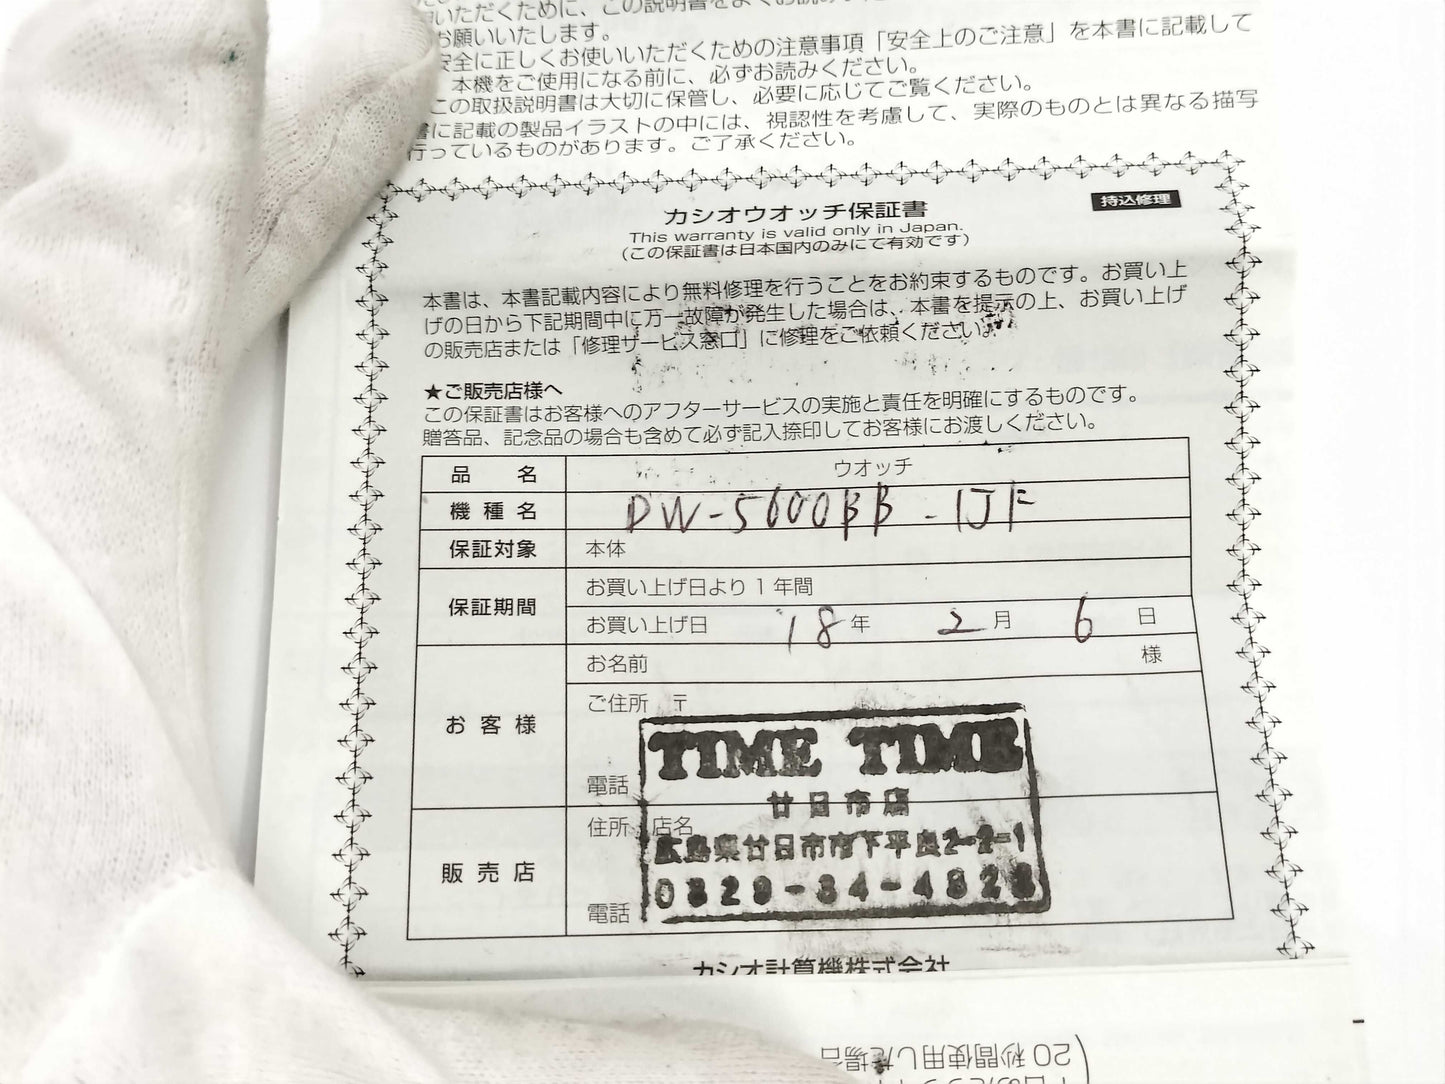 いただくために、この説明書をよくお読み
お願いいたします。
安全に正しくお使いいただくための注意事項「安全上のご注意」を本書に記載して
本機をご使用になる前に、必ずお読みください。
この取扱説明書は大切に保管し、必要に応じてご覧ください。
書に記載の製品イラストの中には、視認性を考慮して、実際のものとは異なる描写
行っているものがあります。ご了承ください。
持込修理
カシオウオッチ保証書
This warranty is valid only in Japan.
(この保証書は日本国内のみにて有効です)
本書は、本書記載内容により無料修理を行うことをお約束するものです。お買い上
げの日から下記期間中に万一故障が発生した場合は、本書を提示の上、お買い上げ
の販売店または「修理サービス窓口」に修理をご依頼ください。
★ご販売店様へ
この保証書はお客様へのアフターサービスの実施と責任を明確にするものです。
贈答品、記念品の場合も含めて必ず記入捺印してお客様にお渡しください。
品 名 ウオッチ
機種名 DW-5600BB-1JF
保証対象 本体
保証期間 お買い上げ日より1年間
お買い上げ日 18年 2月 6日
お客様 お名前 様
ご住所 〒
電話
TIME TIME
廿日市店
販売店 住所 店名
広島県廿日市市下平良2-2-1
電話 0829-34-4828
カシオ計算機株式会社
20秒間使用した場合